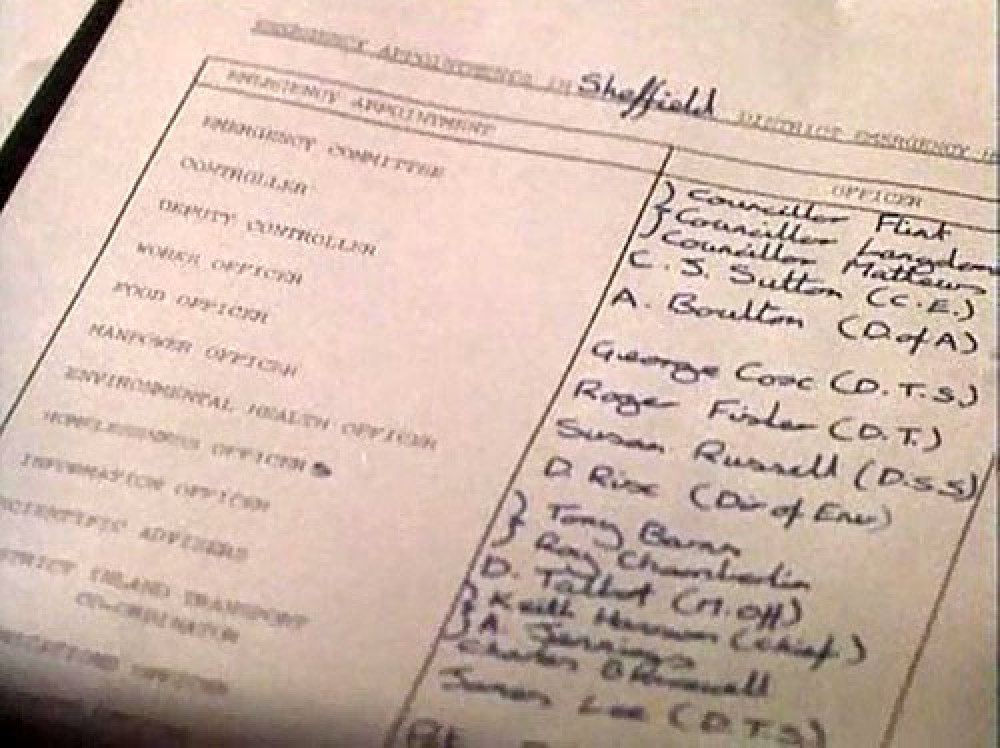 EMERGENCY APPOINTMENTS IN Sheffield DISTRICT EMERGENCY
EMERGENCY APPOINTMENT
OFFICER
EMERGENCY COMMITTEE
} Councillor Flint
} Councillor Langdon
Councillor Mathews
CONTROLLER
C. S. Sutton (C.E.)
DEPUTY CONTROLLER
A. Boulton (D.of A)
WORKS OFFICER
George Cox (D.T.S.)
FOOD OFFICER
Roger Fisher (D.T.)
MANPOWER OFFICER
Susan Russell (D.S.S)
ENVIRONMENTAL HEALTH OFFICER
D. Rix (Dir of Env)
HOMELESSNESS OFFICER
} Tony Baran
} Roy Chamberlin
INFORMATION OFFICER
D. Talbot (M.Off)
SCIENTIFIC ADVISERS
} Keith (Chief)
} A. Jennings
INLAND TRANSPORT
CO-ORDINATOR
Charles
OFFICER
Lee (D.T.S)